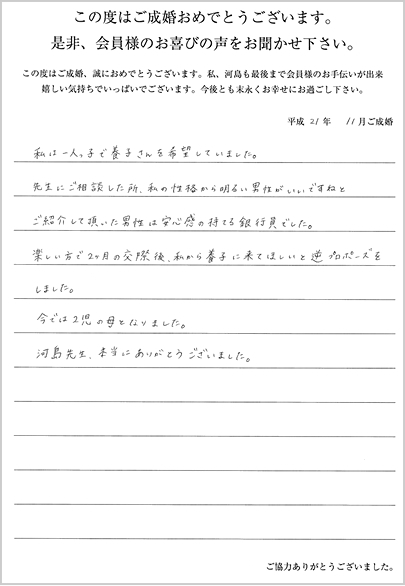 この度はご成婚おめでとうございます。
是非、会員様のお喜びの声をお聞かせ下さい。
この度はご成婚、誠におめでとうございます。私、河島も最後まで会員様のお手伝いが出来
嬉しい気持ちでいっぱいでございます。今後とも末永くお幸せにお過ごし下さい。
平成 21 年 11 月ご成婚
私は一人っ子で養子さんを希望していました。
先生にご相談した所、私の性格から明るい男性がいいですねと
ご紹介して頂いた男性は安心感の持てる銀行員でした。
楽しい方で2ヶ月の交際後、私から養子に来てほしいと逆プロポーズを
しました。
今では2児の母となりました。
河島先生、本当にありがとうございました。
ご協力ありがとうございました。